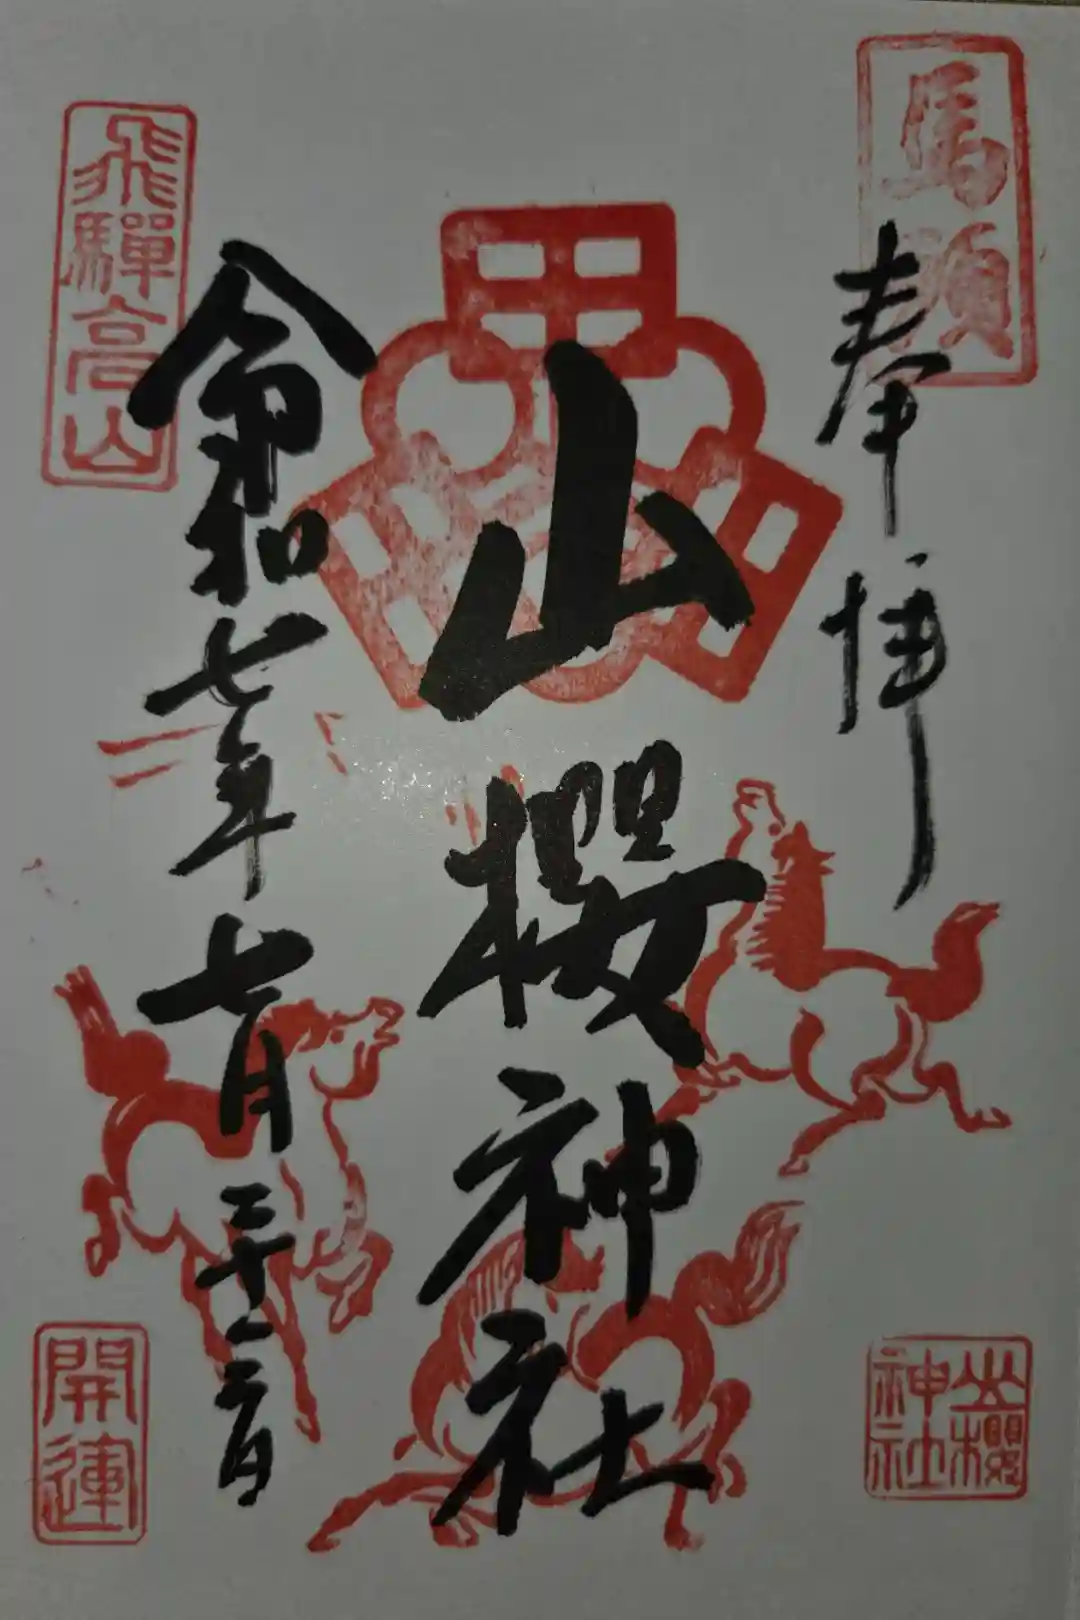 馬頭
奉拝
山櫻神社
山櫻
神社
飛驒高山
令和七年七月二十三日
開運